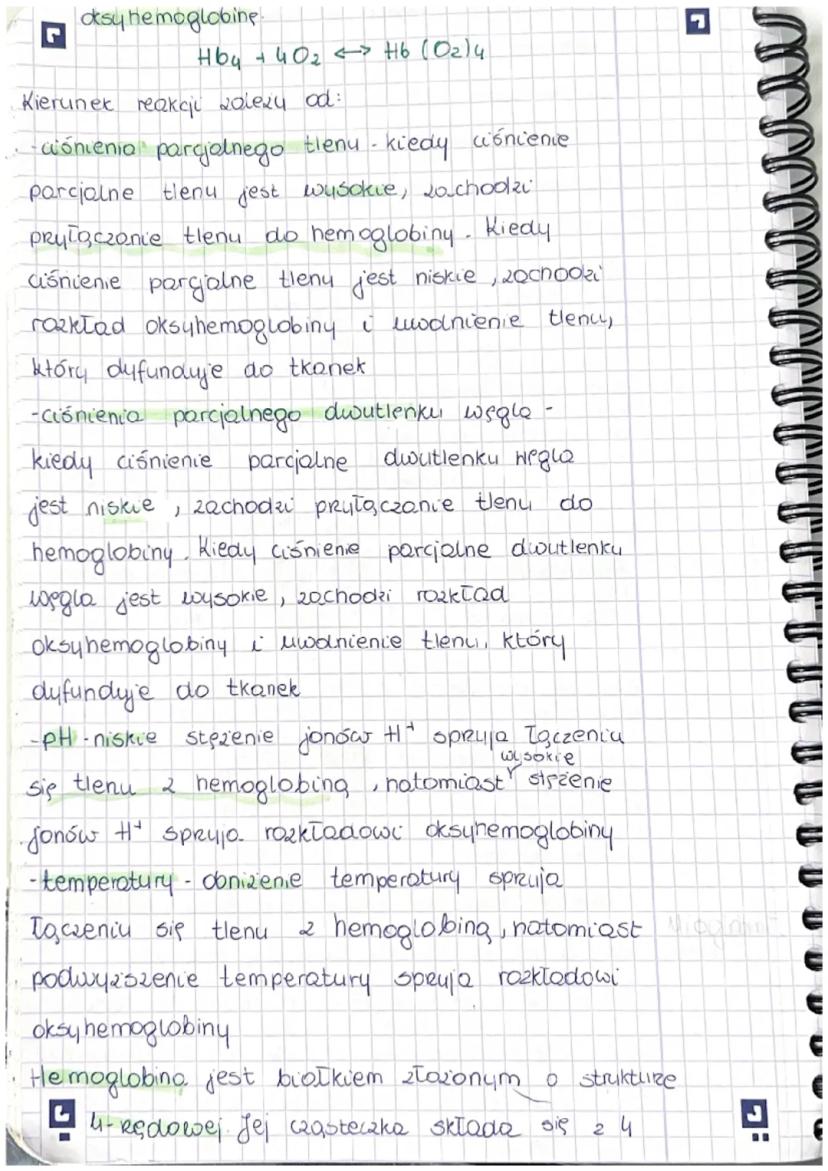 oksyhemoglobinę.
Hb4 + 4O2 <-> Hb (O2)4
Kierunek reakcji zależy od:
- ciśnienia parcjalnego tlenu - kiedy ciśnienie
parcjalne tlenu jest wysokie, zachodzi
przyłączanie tlenu do hemoglobiny. Kiedy
ciśnienie parcjalne tlenu jest niskie, zachodzi
rozkład oksyhemoglobiny i uwolnienie tlenu,
który dyfunduje do tkanek
- ciśnienia parcjalnego dwutlenku węgla -
kiedy ciśnienie parcjalne dwutlenku węgla
jest niskie, zachodzi przyłączanie tlenu do
hemoglobiny. Kiedy ciśnienie parcjalne dwutlenku
węgla jest wysokie, zachodzi rozkład
oksyhemoglobiny i uwolnienie tlenu, który
dyfunduje do tkanek
- pH - niskie stężenie jonów H+ sprzyja łączeniu
się tlenu z hemoglobiną, natomiast wysokie stężenie
jonów H+ sprzyja rozkładowi oksyhemoglobiny
- temperatury - obniżenie temperatury sprzyja
łączeniu się tlenu z hemoglobiną, natomiast
podwyższenie temperatury sprzyja rozkładowi
oksyhemoglobiny
Hemoglobina jest białkiem złożonym o strukturze
4-rzędowej. Jej cząsteczka składa się z 4